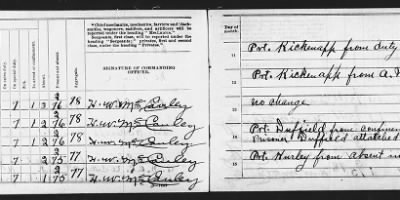 "Chief mechanics, mechanics, farriers and black-
smiths, wagoners, saddlers, and artificers will be
reported under the heading of "MECHANICS."
Sergeants, first class, will be reported under the
heading "Sergeants;" privates, first and second
class, under the heading "Privates."
SIGNATURE OF COMMANDING
OFFICER.
On special duty.
Sick.
In arrest or confinement.
Absent.
Present and absent.
Aggregate.
7 1 3 76 78 H. W. McCauley
7 1 2 76 78 H. W. McCauley
7 1 2 76 78 H. W. McCauley
7 2 75 77 H. W. McCauley
7 1 75 77 H. W. McCauley
Day of month.
11 Pvt. Kickenapp from duty
12 Pvt. Kickenapp from A.
13 no change
14 Pvt. Duffield from confinem
Prisoner Duffield attached
15 Pvt. Hurley from absent in